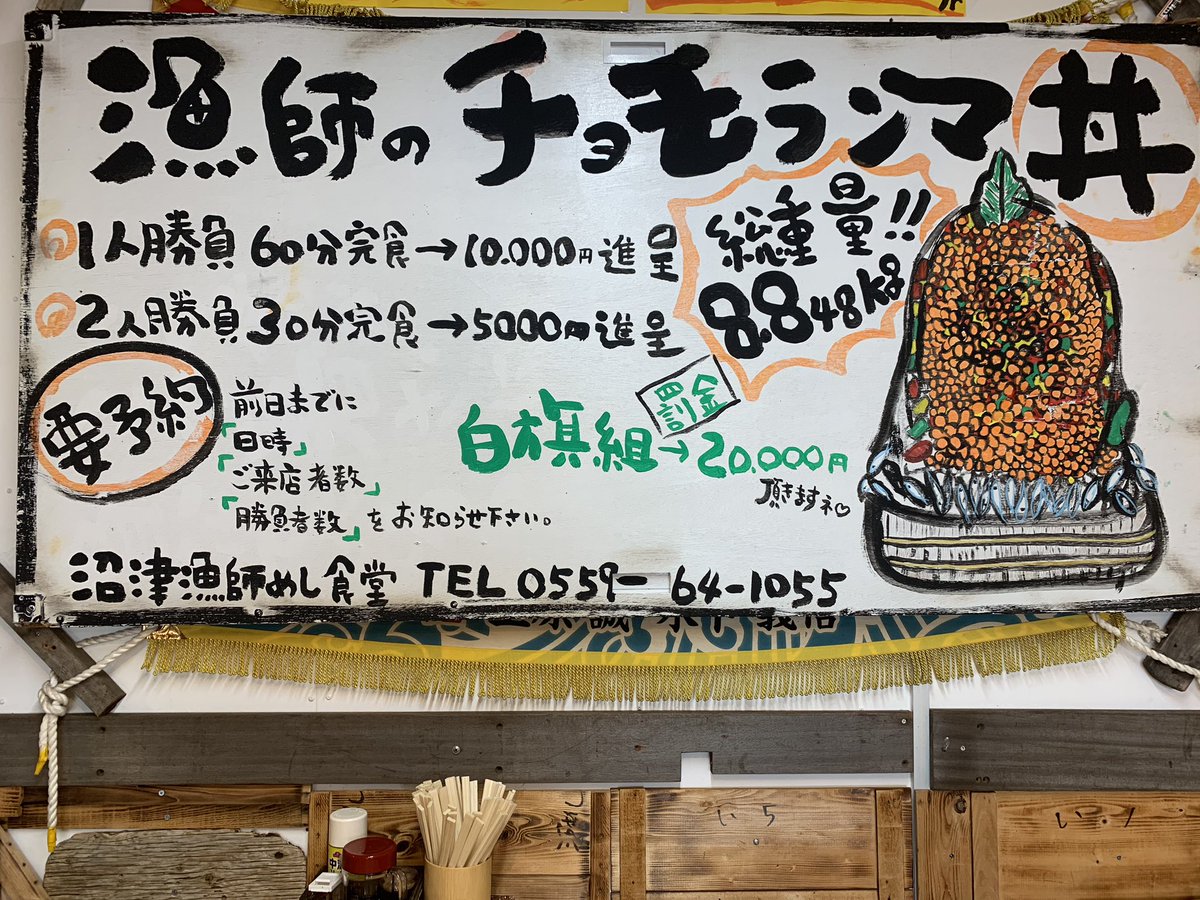 漁師のチョモランマ丼
1人勝負 60分完食→10.000円進呈
2人勝負 30分完食→5000円進呈
総重量!!
8.848kg
要予約
前日までに
「日時」
「ご来店者数」
「勝負者数」をお知らせ下さい。
罰金
白旗組→20.000円
頂きますネ♡
沼津漁師めし食堂 TEL 0559-64-1055